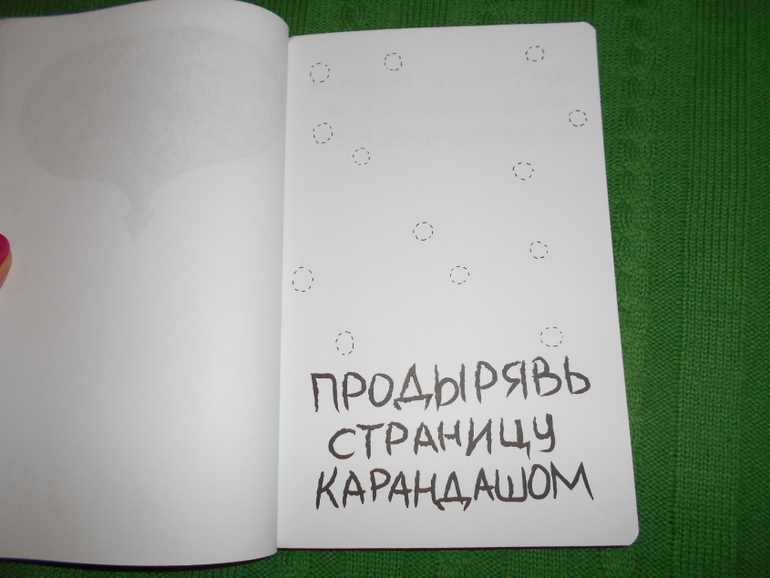 ПРОДЫРЯВЬ
СТРАНИЦУ
КАРАНДАШОМ